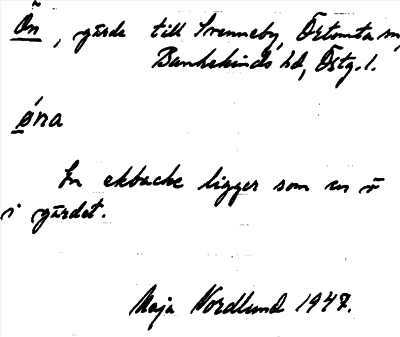 Ön, gärde till Svenneby, Örtomta sn,
Bankekinds hd, Östg. l.
øna
En ekbacke ligger som en ö
i gärdet.
Maja Nordlund 1947.